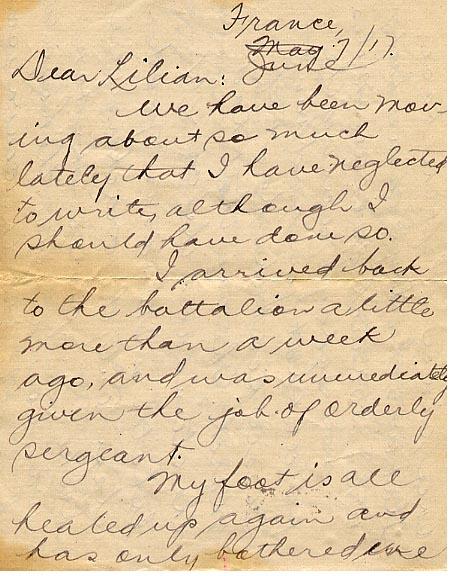 France,
May 7/17.
June
Dear Lilian:
We have been mov-
ing about so much
lately that I have neglected
to write, although I
should have done so.
I arrived back
to the battalion a little
more than a week
ago, and was immediately
given the job of orderly
sergeant.
My foot is all
healed up again and
has only bothered me